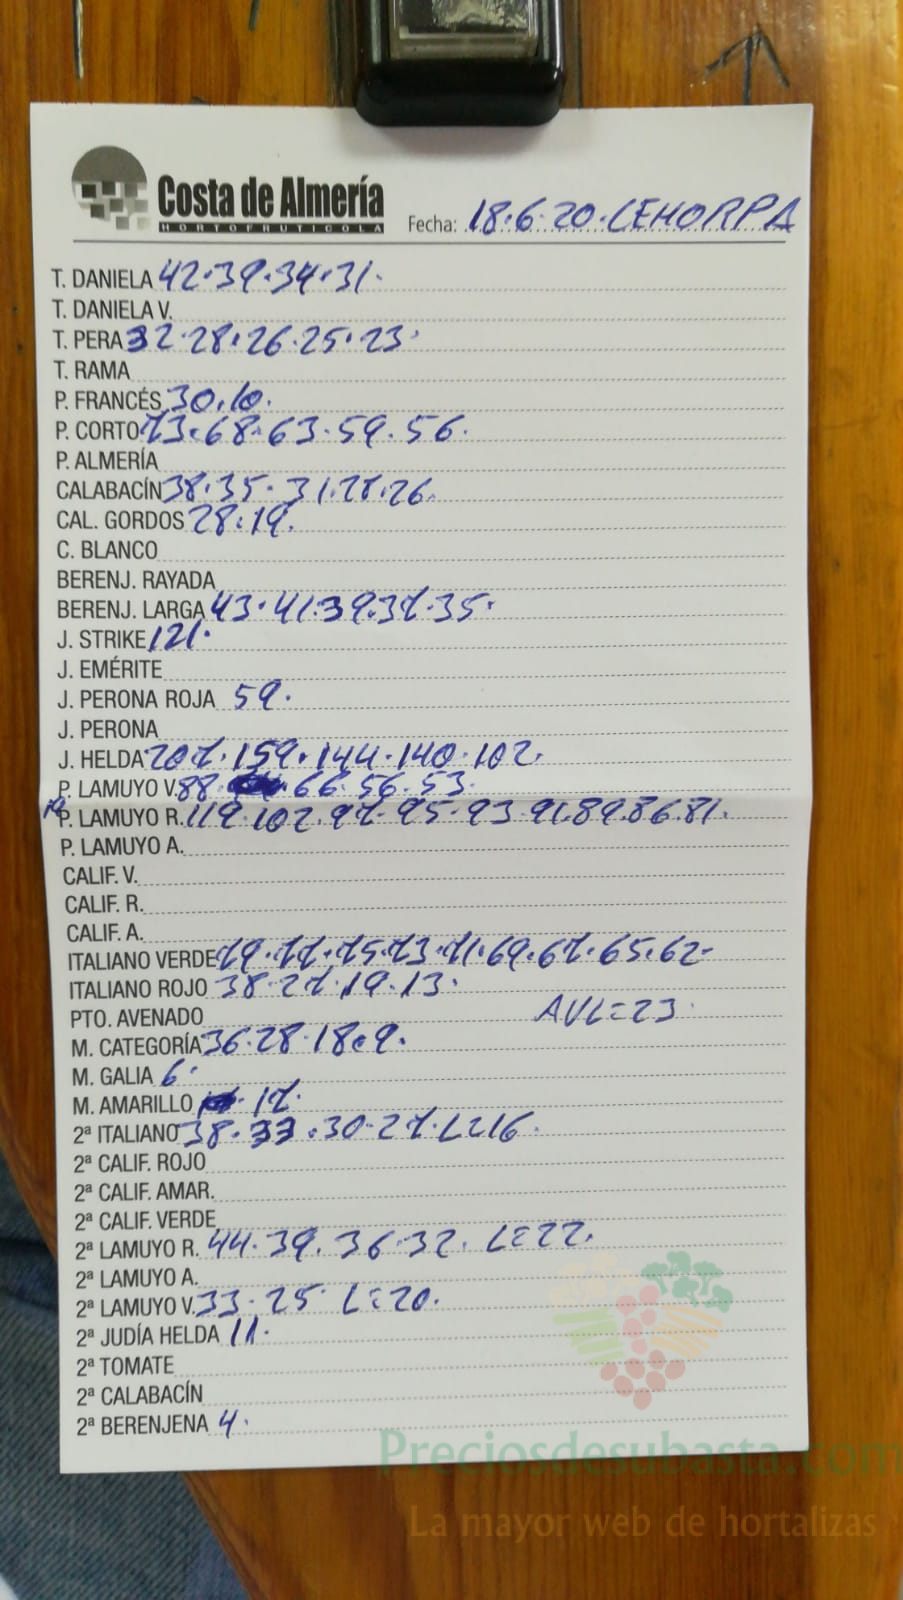 Costa de Almería
HORTOFRUTICOLA
Fecha: 18.6.20.CEHORPA
T. DANIELA 42.39.34.31.
T. DANIELA V.
T. PERA 32.28.26.25.23.
T. RAMA
P. FRANCÉS 30.10.
P. CORTO 73.68.63.59.56.
P. ALMERÍA
CALABACÍN 38.35.31.28.26.
CAL. GORDOS 28.19.
C. BLANCO
BERENJ. RAYADA
BERENJ. LARGA 43.41.39.37.35.
J. STRIKE 121.
J. EMÉRITE
J. PERONA ROJA 59.
J. PERONA
J. HELDA 207.159.144.140.102.
P. LAMUYO V. 88. 66.56.53.
P. LAMUYO R. 119.102.97.95.93.91.89.86.81.
P. LAMUYO A.
CALIF. V.
CALIF. R.
CALIF. A.
ITALIANO VERDE 79.77.75.73.71.69.67.65.62-
ITALIANO ROJO 38.27.19.13.
PTO. AVENADO AVL=23.
M. CATEGORÍA 36.28.18.9.
M. GALIA 6.
M. AMARILLO 17.
2ª ITALIANO 38.33.30.27.L=16.
2ª CALIF. ROJO
2ª CALIF. AMAR.
2ª CALIF. VERDE
2ª LAMUYO R. 44.39.36.32. L=22.
2ª LAMUYO A.
2ª LAMUYO V. 33.25. L=20.
2ª JUDÍA HELDA 11.
2ª TOMATE
2ª CALABACÍN
2ª BERENJENA 4.
Preciosdesubasta.com
La mayor web de hortalizas